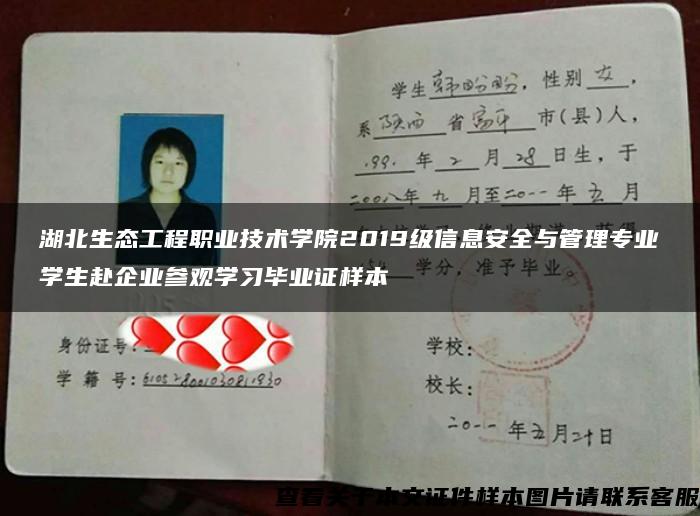 学生韩盼盼，性别女，
系陕西省富平市(县)人，
199.年2月28日生，于
二00八年九月至二0一一年五月
湖北生态工程职业技术学院2019级信息安全与管理专业
学生赴企业参观学习毕业证样本
学分，准予毕业。
身份证号：
学籍号：
学校：
校长：
二0一一年五月二十日
查看关于本文证件样本图片请联系客服